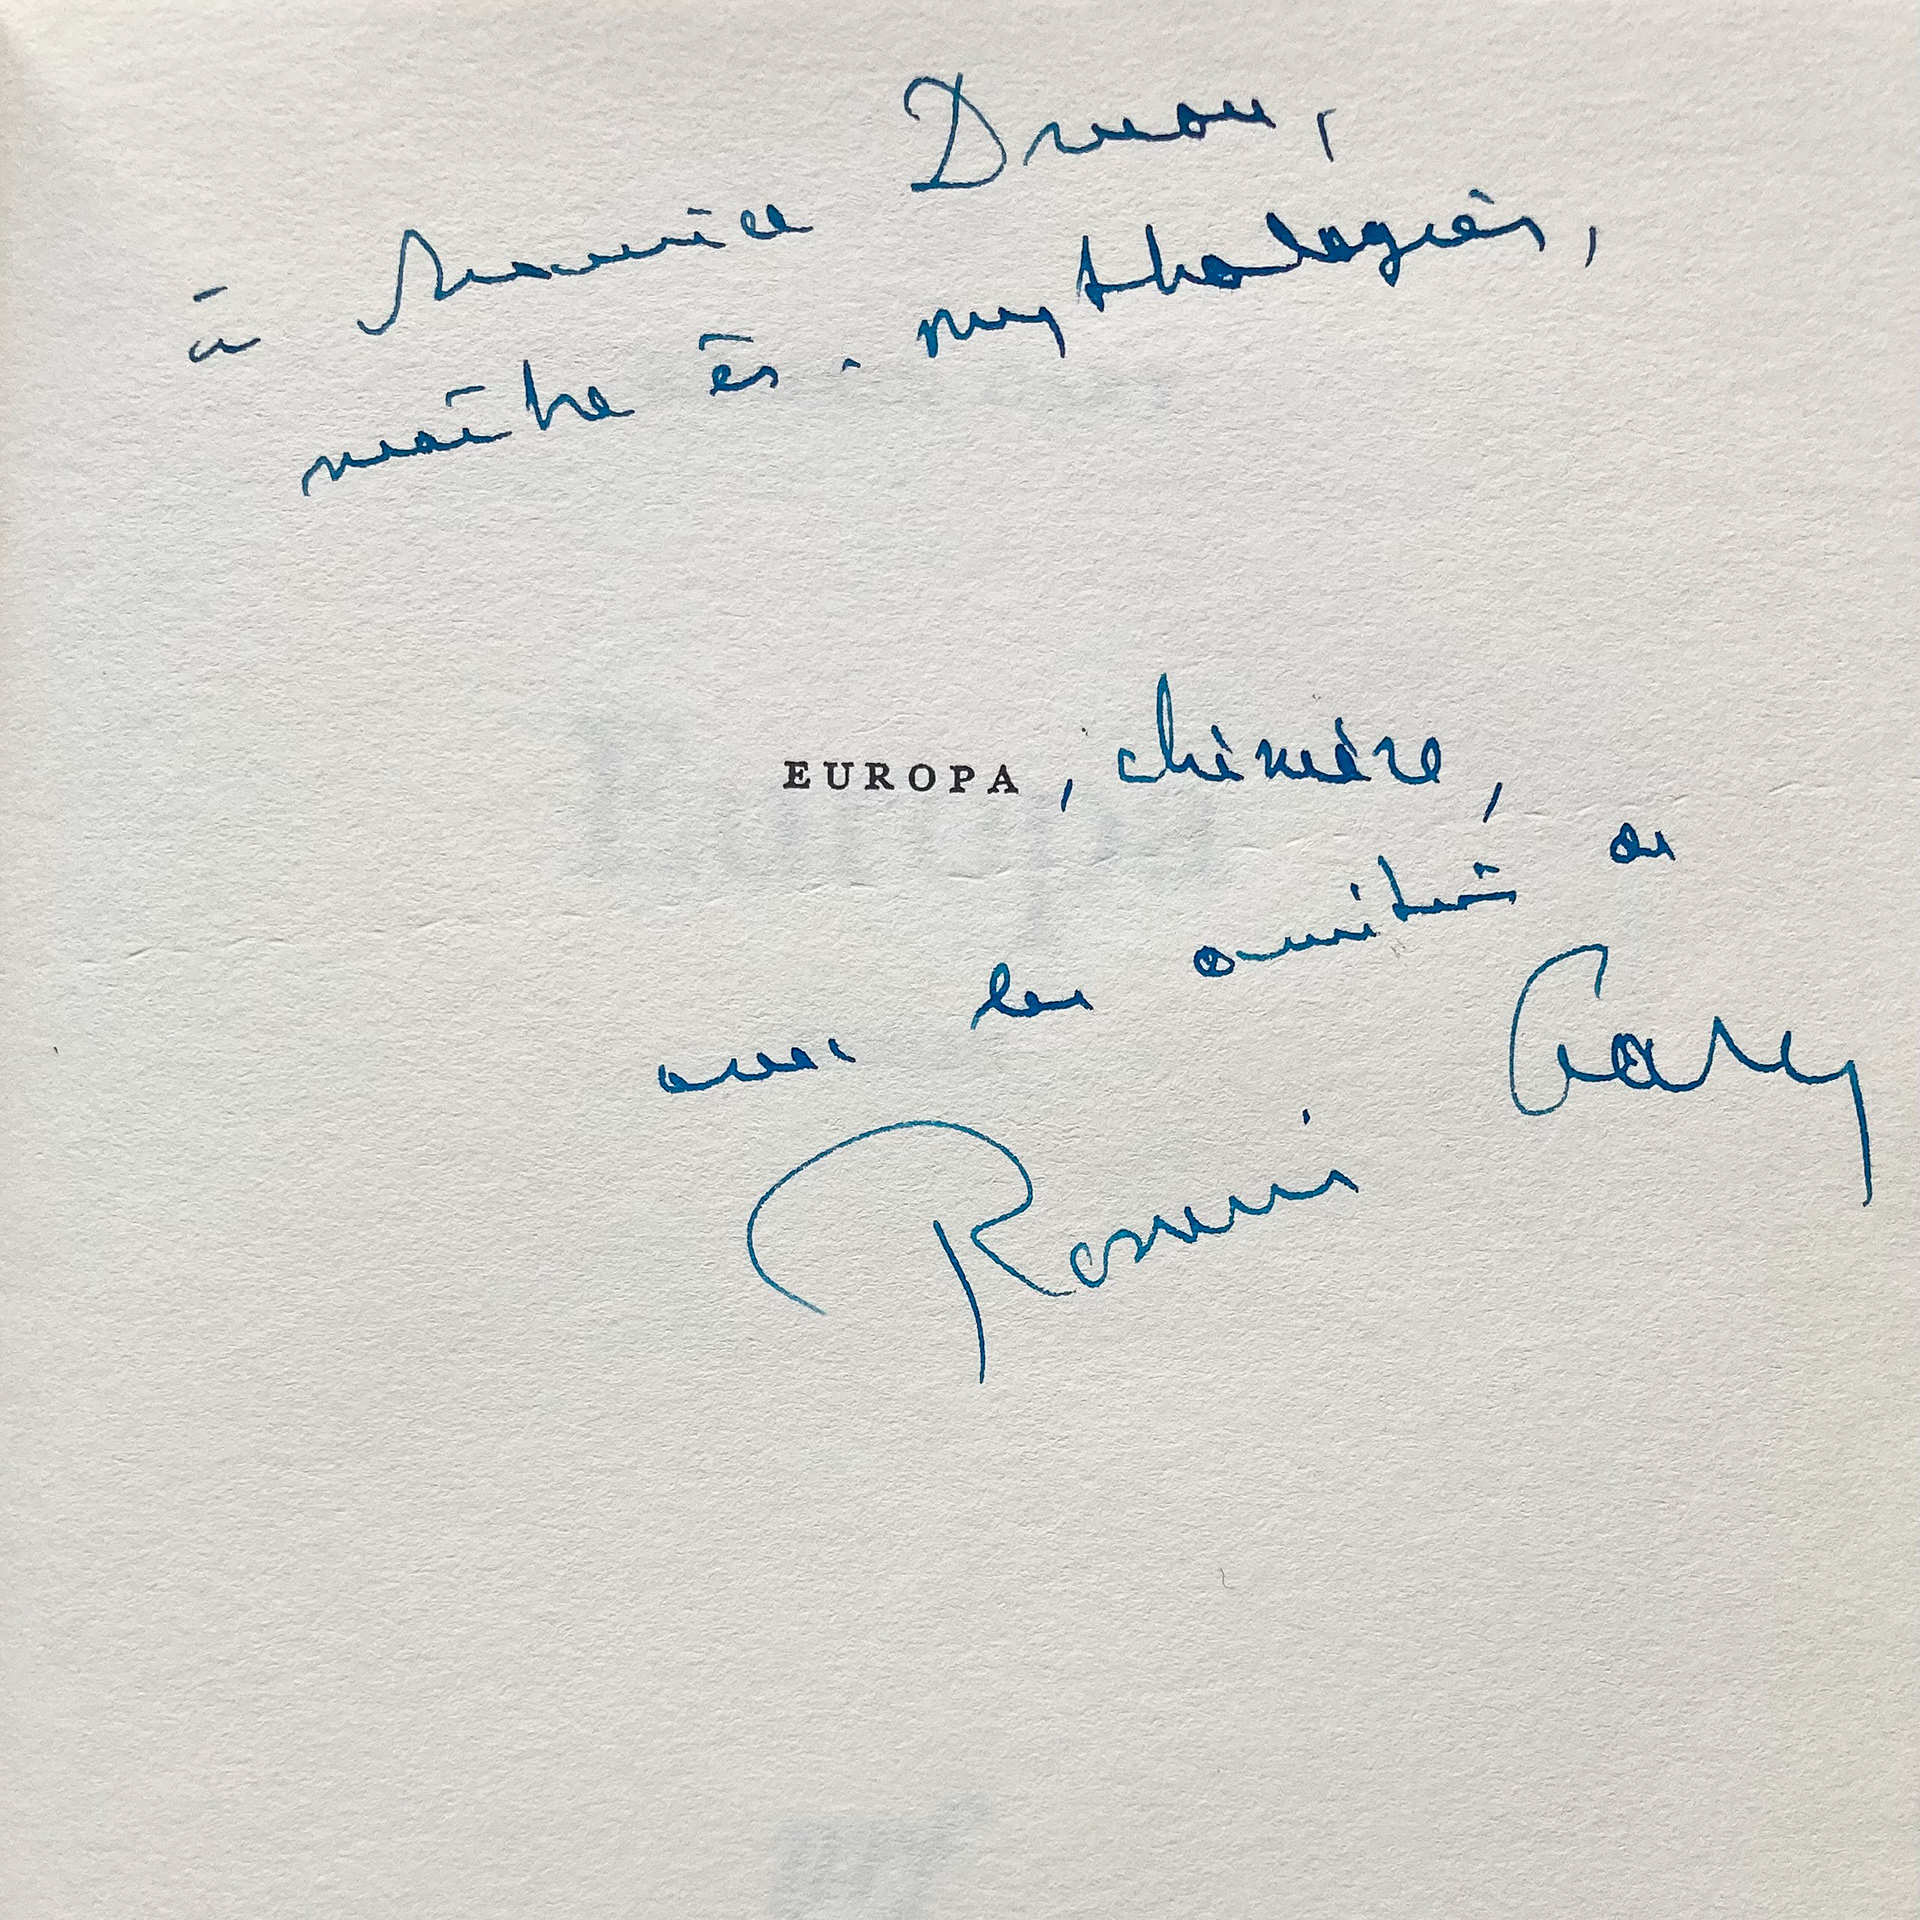 à Maurice Druon,
maître ès-mythologies,
EUROPA, chimère,
avec les amitiés de
Romain Gary